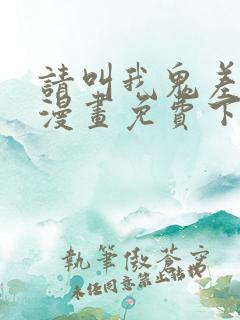 請叫我鬼差
漫畫免費下
執筆傲蒼穹
未經同意禁止轉載